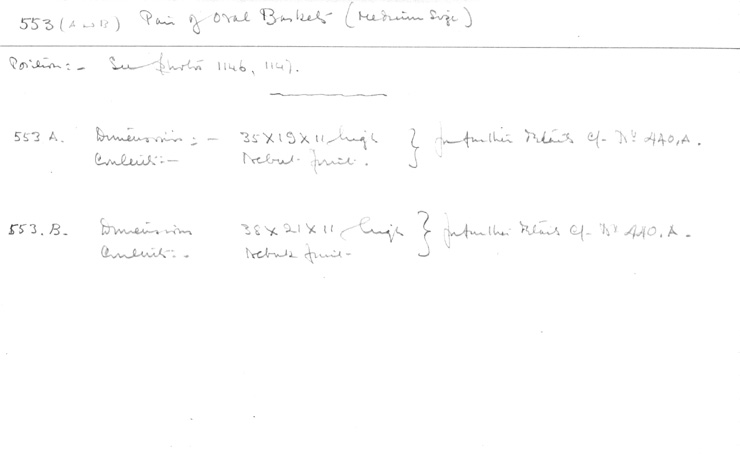 553 (A and B) Pair of Oval Baskets (Medium Size)
Position:- See photos 1146, 1147.
553 A. Dimensions:- 35 x 19 x 11 high } for further details cf. No. 440, A.
Contents:- Nebak fruit.
553. B. Dimensions 38 x 21 x 11 high } for further details cf. No. 440. A.
Contents:- Nebak fruit.